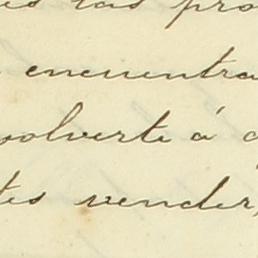 es las pro
encuentra
volverte á
tes vender,